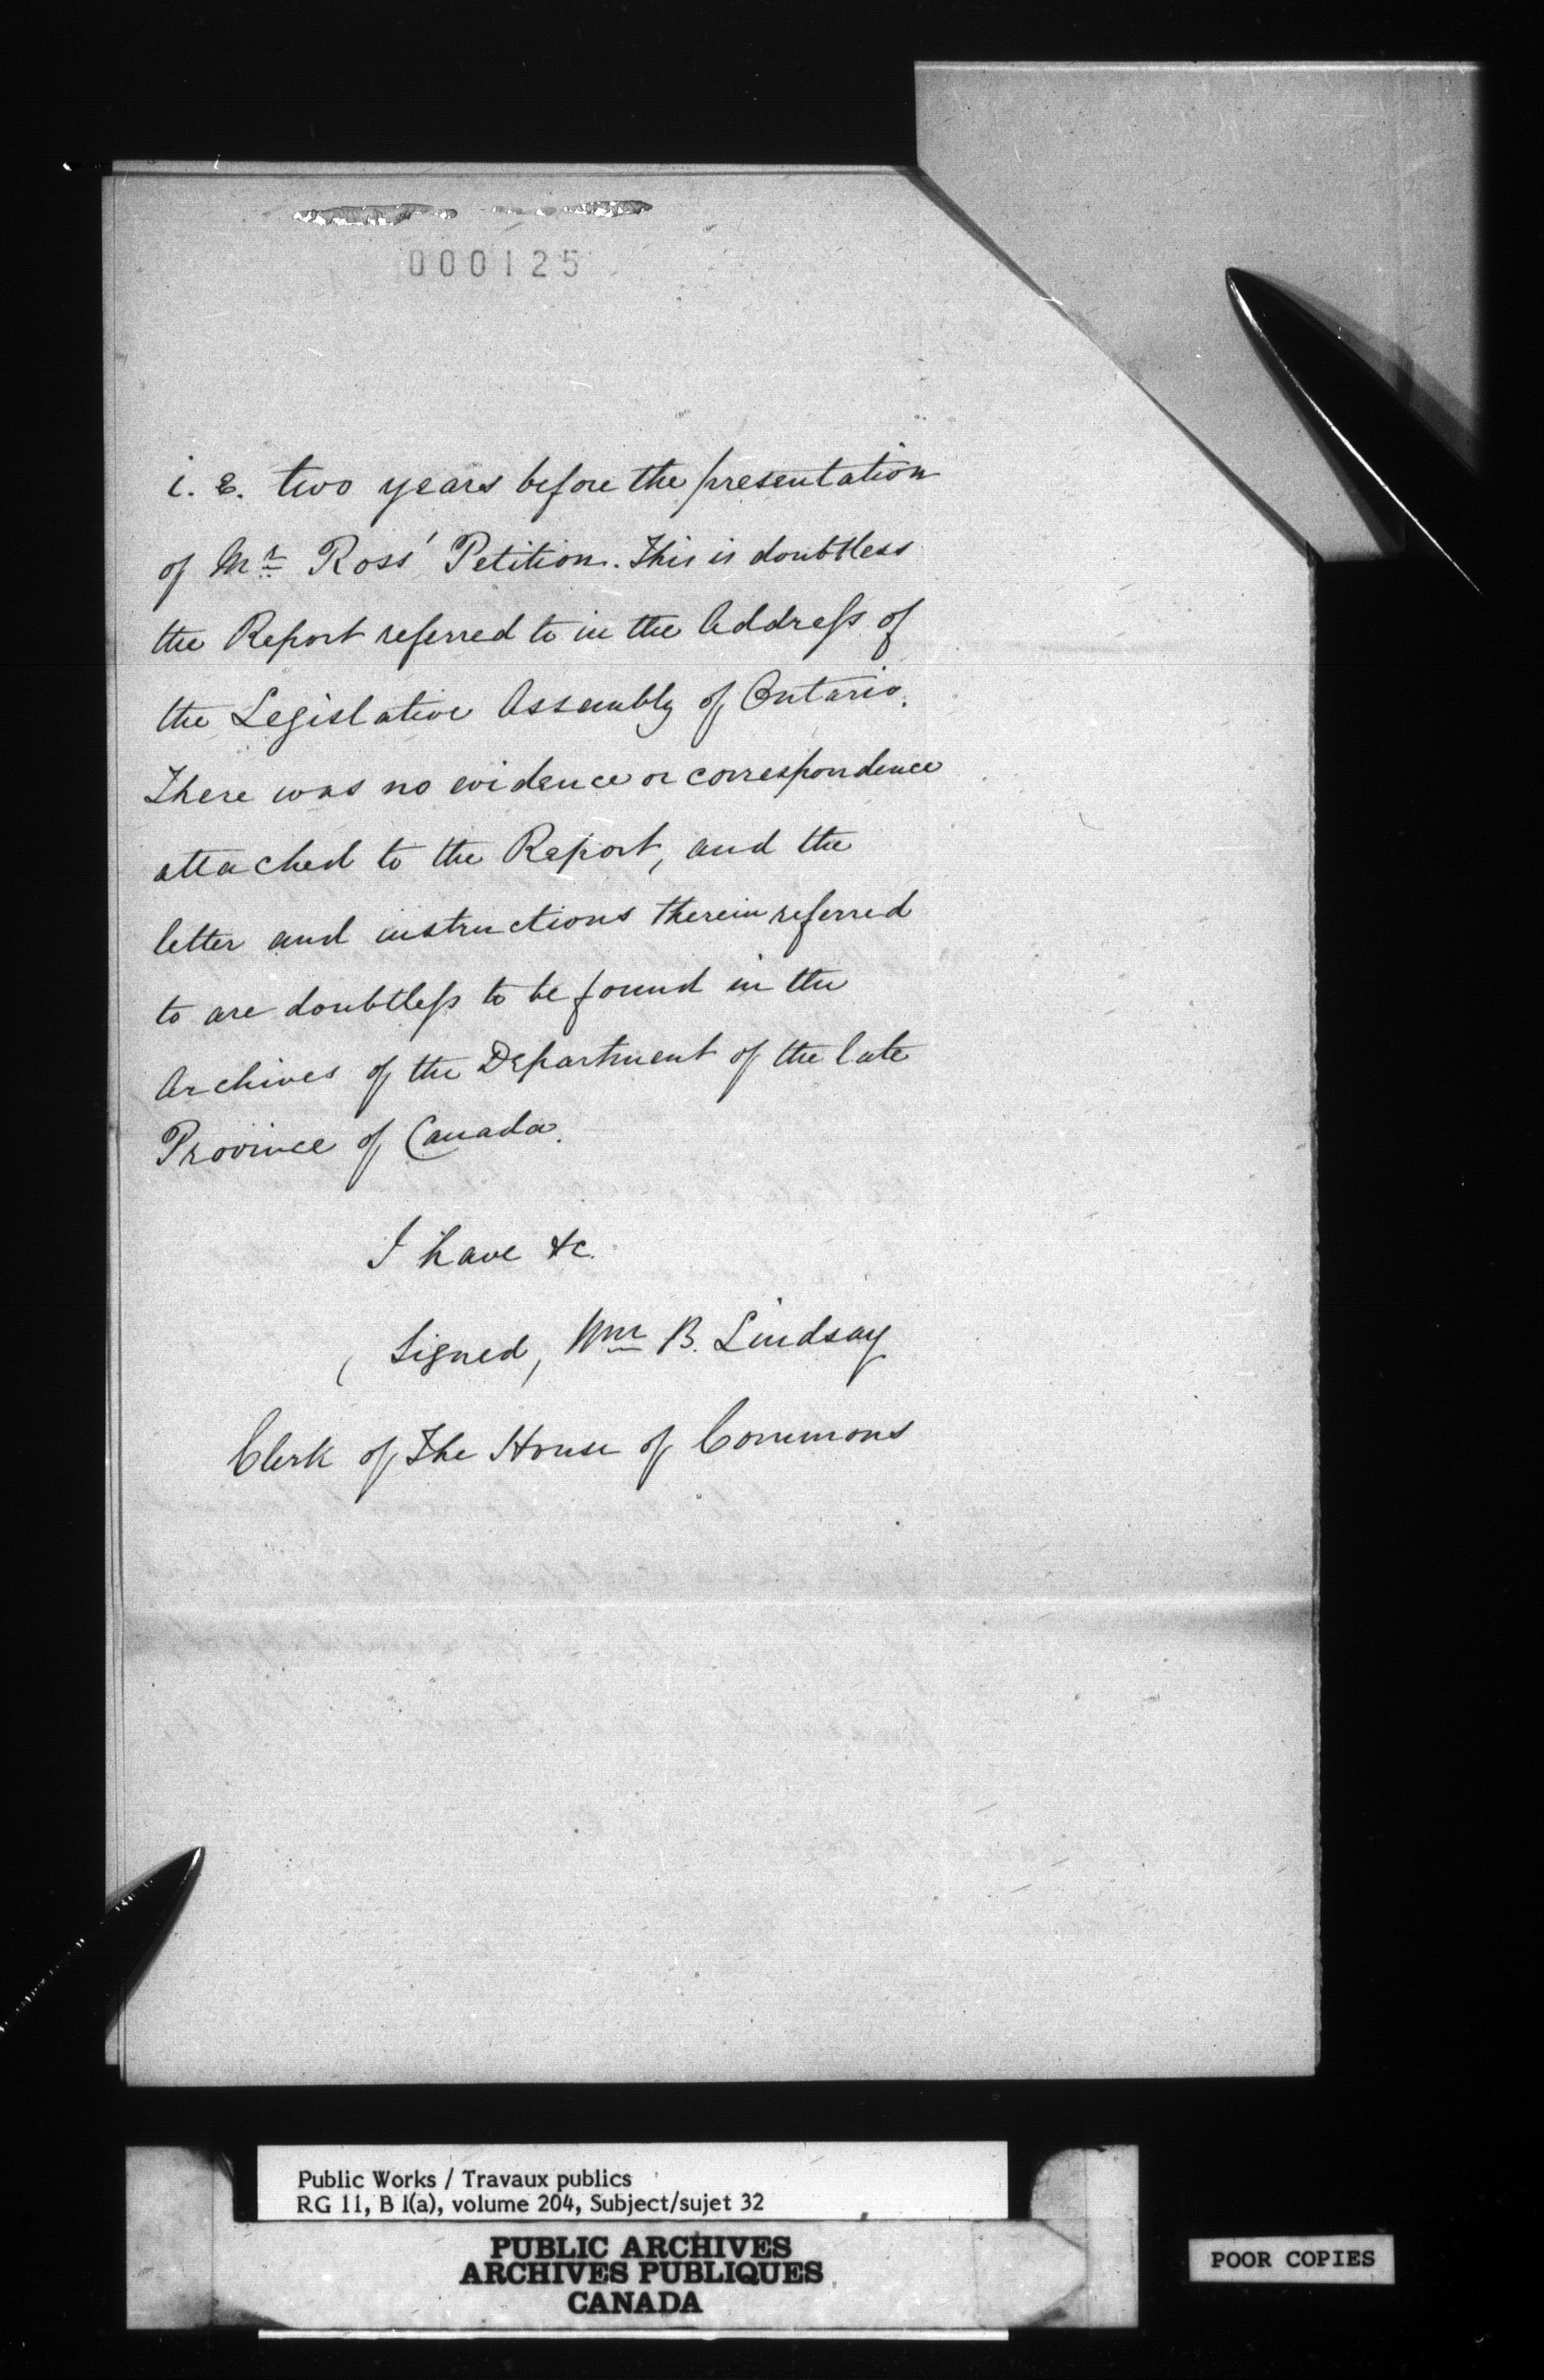 000125
i. e. two years before the presentation
of Mr Ross' Petition. This is doubtless
the Report referred to in the Address of
the Legislative Assembly of Ontario.
There was no evidence or correspondence
attached to the Report, and the
letter and instructions therein referred
to are doubtless to be found in the
Archives of the Department of the late
Province of Canada.
I have &c.
( Signed, Wm B. Lindsay
Clerk of The House of Commons
Public Works / Travaux publics
RG 11, B 1(a), volume 204, Subject/sujet 32
PUBLIC ARCHIVES
ARCHIVES PUBLIQUES
CANADA
POOR COPIES